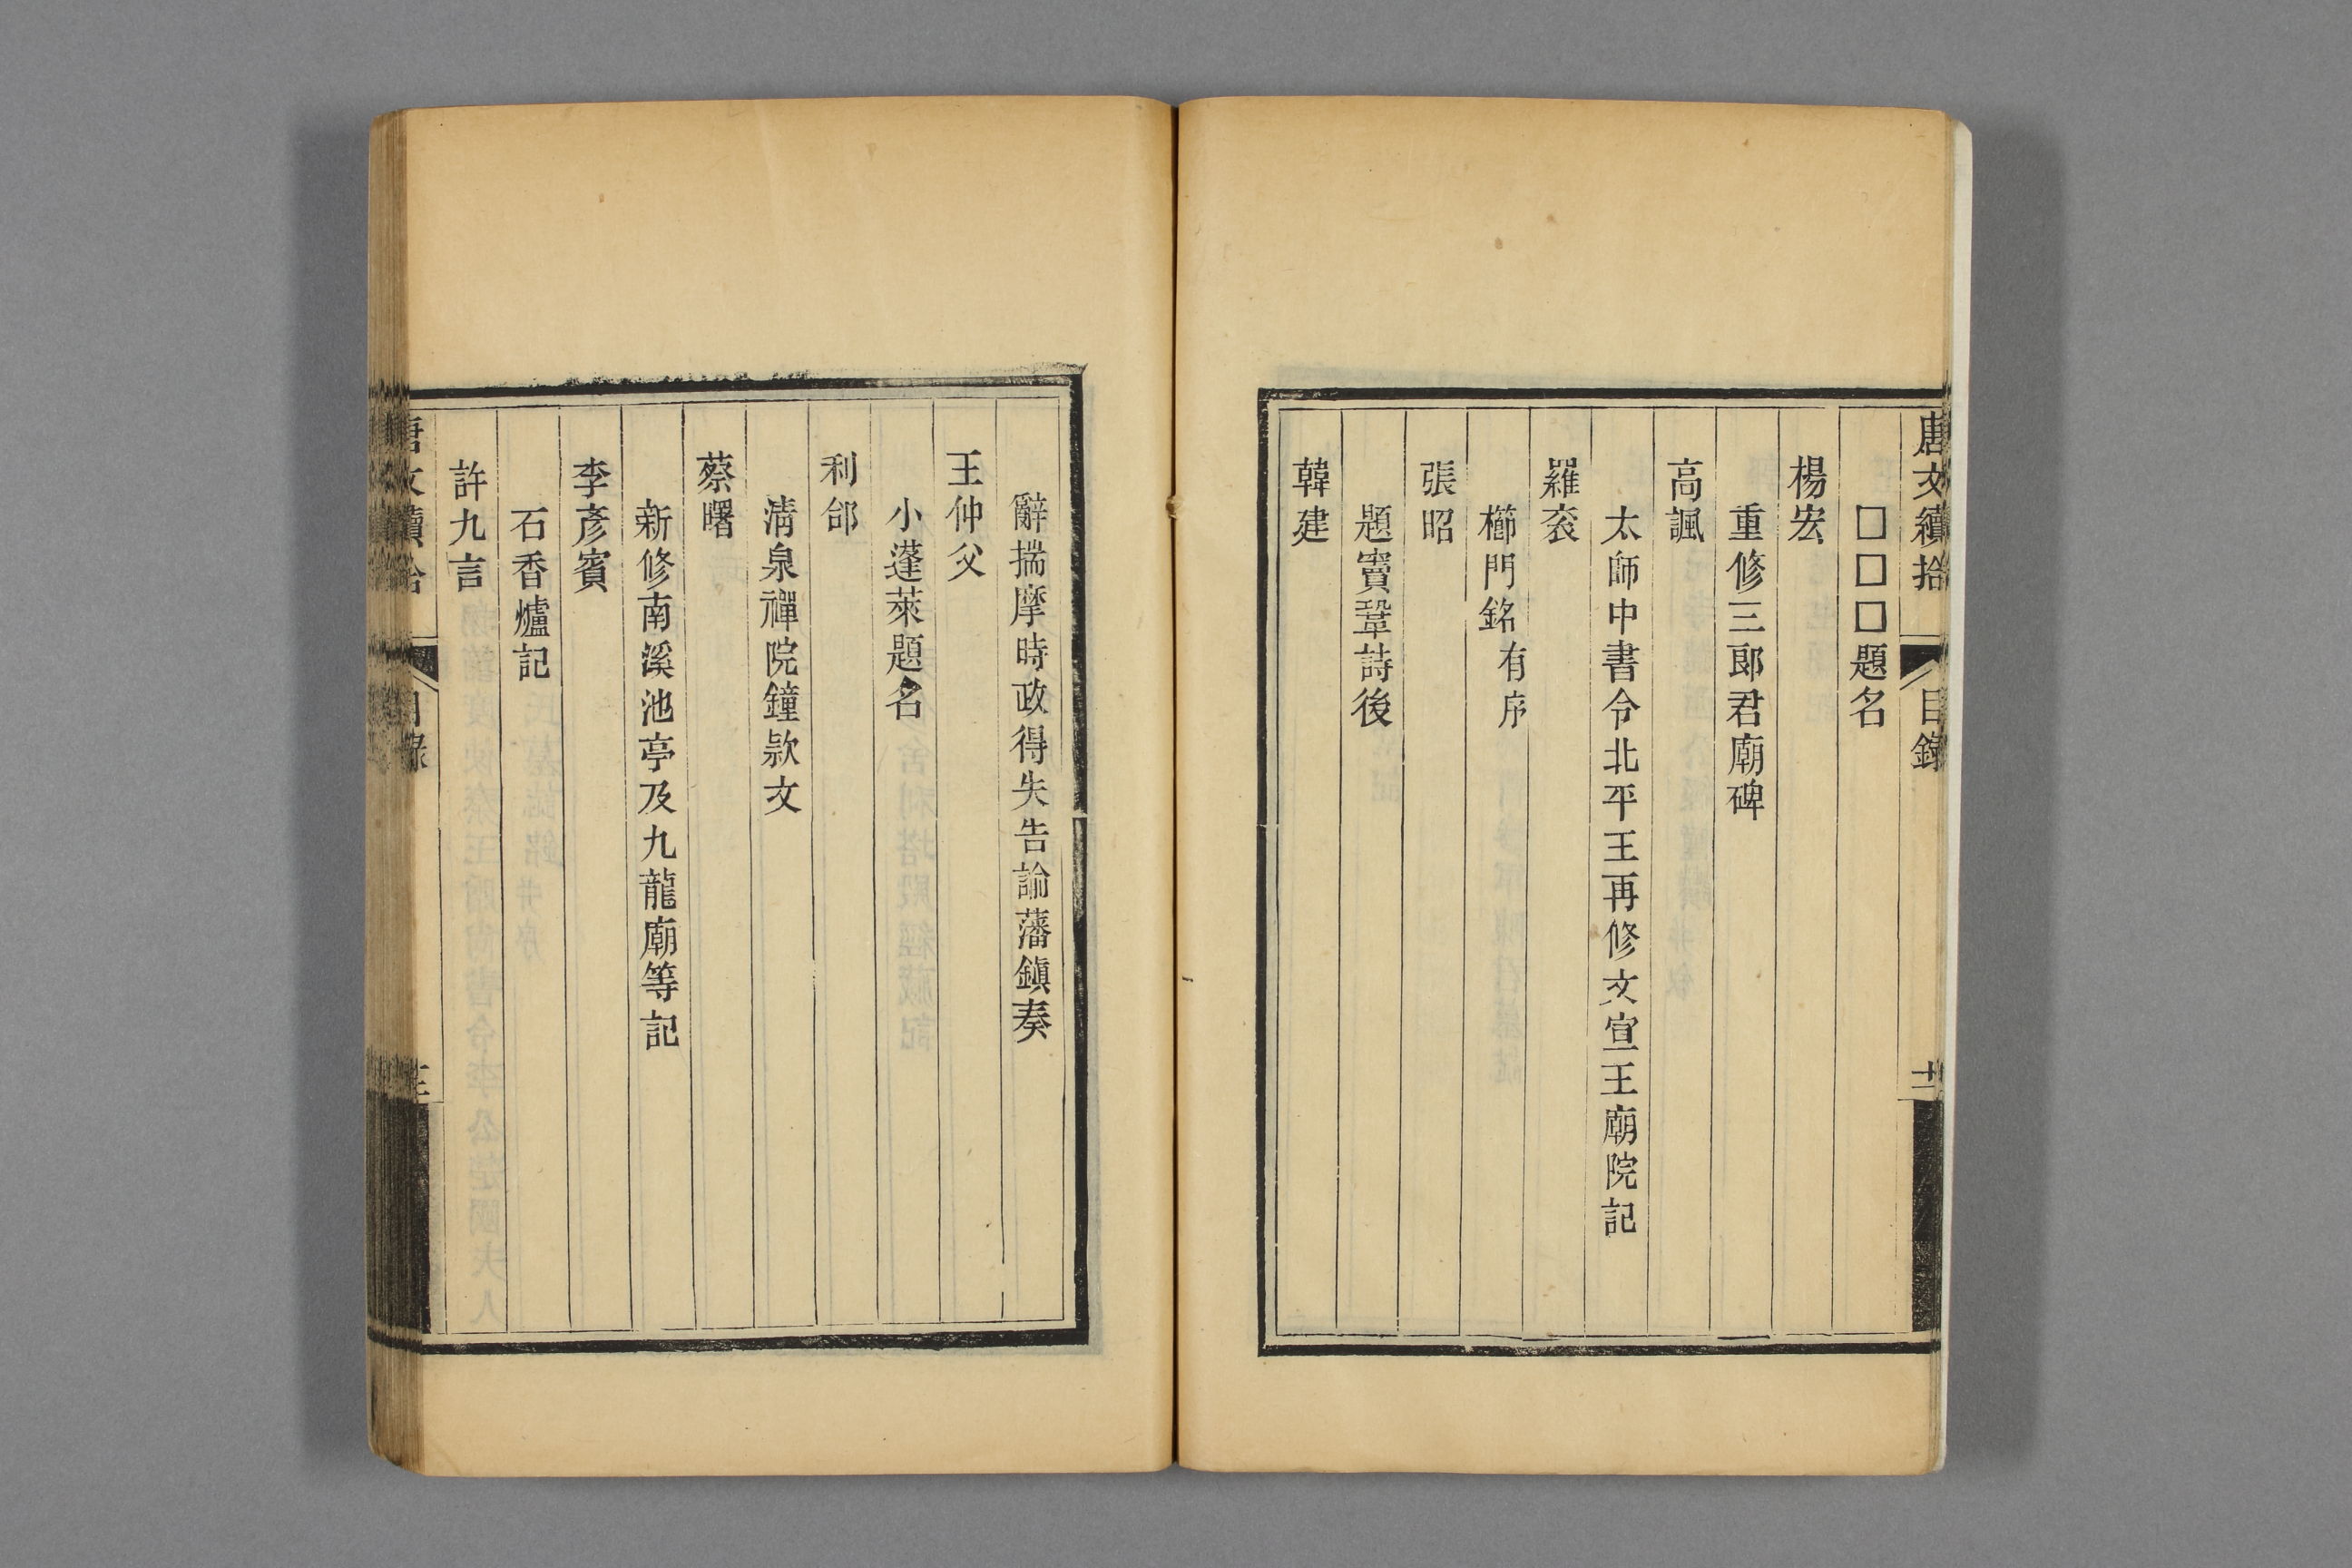 唐文續拾
目錄
十二
□□□題名
楊宏
重修三郎君廟碑
高諷
太師中書令北平王再修文宣王廟院記
羅袞
櫛門銘有序
張昭
題竇鞏詩後
韓建
辭揣摩時政得失告諭藩鎮奏
王仲父
小蓬萊題名
利郃
清泉禪院鐘款文
蔡曙
新修南溪池亭及九龍廟等記
李彥賓
石香爐記
許九言
唐文續拾
目錄